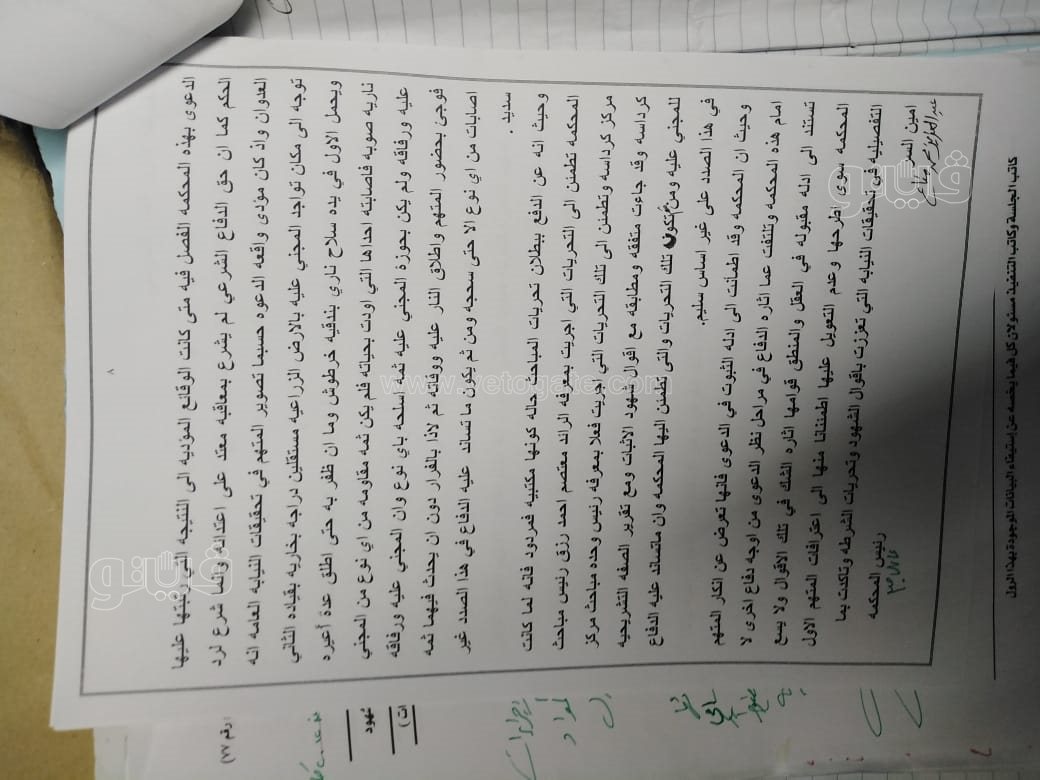 ٨
الدعوى بهذه المحكمه الفصل فيه متى كانت الوقائع المؤديه الى النتيجه التي رتبتها عليها
الحكم كما ان حق الدفاع الشرعي لم يشرع بمعاقبه معتد على اعتدائه وانما شرع لرد
العدوان واذ كان مؤدى واقعه الدعوه حسبما تصوير المتهم في تحقيقات النيابه العامه انه
توجه الى مكان تواجد المجني عليه بالارض الزراعيه مستقلين دراجه بخاريه بقياده الثاني
ويحمل الاول في يده سلاح ناري بندقيه خرطوش وما ان ظفر به حتى اطلق عدة أعيره
ناريه صوبه فاصابته احداها التي اودت بحياته فلم يكن ثمه مقاومه من اي نوع من المجني
عليه ورفاقه ولم يكن بحوزة المجني عليه ثمه اسلحه باي نوع وان المجني عليه ورفاقه
فوجئ بحضور المتهم واطلاق النار عليه ووفاته ثم لاذا بالفرار دون ان يحدث فيهما ثمه
اصابات من اي نوع الا حتى سحجه ومن ثم يكون ما تساند عليه الدفاع في هذا الصدد غير
سديد .
وحيث انه عن الدفع ببطلان تحريات المباحث حاله كونها مكتبيه فمردود فانه لما كانت
المحكمه تطمئن الى التحريات التي اجريت بمعرفه الرائد معتصم احمد رزق رئيس مباحث
مركز كرداسه وتطمئن الى تلك التحريات التي اجريت فعلا بمعرفه رئيس وحده مباحث مركز
كرداسه وقد جاءت متفقه ومطابقه مع اقوال شهود الاثبات ومع تقرير الصفه التشريحيه
للمجني عليه ومن ثم تكون تلك التحريات والتى تطمئن اليها المحكمه وان ماتساند عليه الدفاع
في هذا الصدد على غير اساس سليم.
وحيث ان المحكمه وقد اطمأنت الى ادله الثبوت في الدعوى فانها تعرض عن انكار المتهم
امام هذه المحكمه وتلتفت عما اثاره الدفاع في مراحل نظر الدعوى من اوجه دفاع اخرى لا
تستند الى ادله مقبوله في العقل والمنطق قوامها اثاره الشك في تلك الاقوال ولا يسع
المحكمه سوى اطرحها وعدم التعويل عليها اطمئنانا منها الى اعترافات المتهم الاول
التفصيليه في تحقيقات النيابه التي تعززت باقوال الشهود وتحريات الشرطه وتاكدت بما
امين السر
رئيس المحكمه
كاتب الجلسة وكاتب التنفيذ مسئولان كل فيما يخصه عن إستيفاء البيانات الموجودة بهذا الرول
رقم ٧٧)
شهود
ات)
فيتو
www.vetogate.com
فيتو